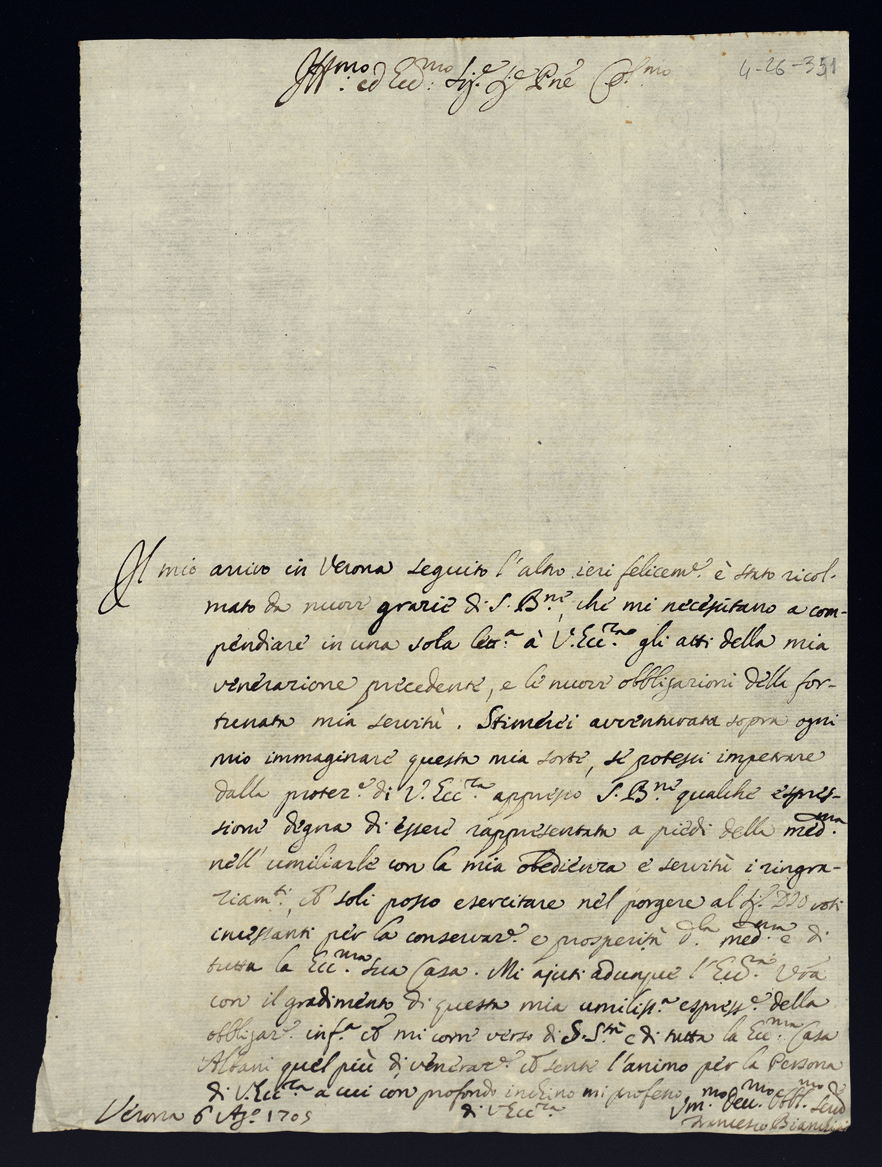 Ill.mo ed Ecc.mo Sig.e Sig.e Pne Col.mo
4-26-351
Il mio arrivo in Verona seguito l'altro ieri felicem.e è stato ricol-
mato da nuove grazie di S. B.ne, che mi necessitano a com-
pendiare in una sola lett.a à V. Ecc.za gli atti della mia
venerazione precedente, e le nuove obbligazioni della for-
tunata mia servitù. Stimerei avventurata sopra ogni
mio immaginare questa mia sorte, se potessi impetrare
dalla protez.e di V. Ecc.za appresso S. B.ne qualche espres-
sione degna di essere rappresentata a piedi della med.ma
nell'umiliarle con la mia obedienza e servitù i ringra-
ziam.ti, che soli posso esercitare nel porgere al Sig. DIO voti
incessanti per la conservaz.e e prosperità d.la med.ma e di
tutta la Ecc.ma sua Casa. Mi ajuti adunque l'Ecc.za Vra
con il gradimento di questa mia umiliss.a espress.e della
obbligaz.e inf.a che mi corre verso di S. S.tà e di tutta la Ecc.ma Casa
Albani quel più di veneraz.e che sente l'animo per la Persona
di V. Ecc.za a cui con profondo inchino mi professo
Verona 6 Ag.o 1705 di V. Ecc.za Um.mo Dev.mo Obbl.mo Ser.e
Francesco Bianchini